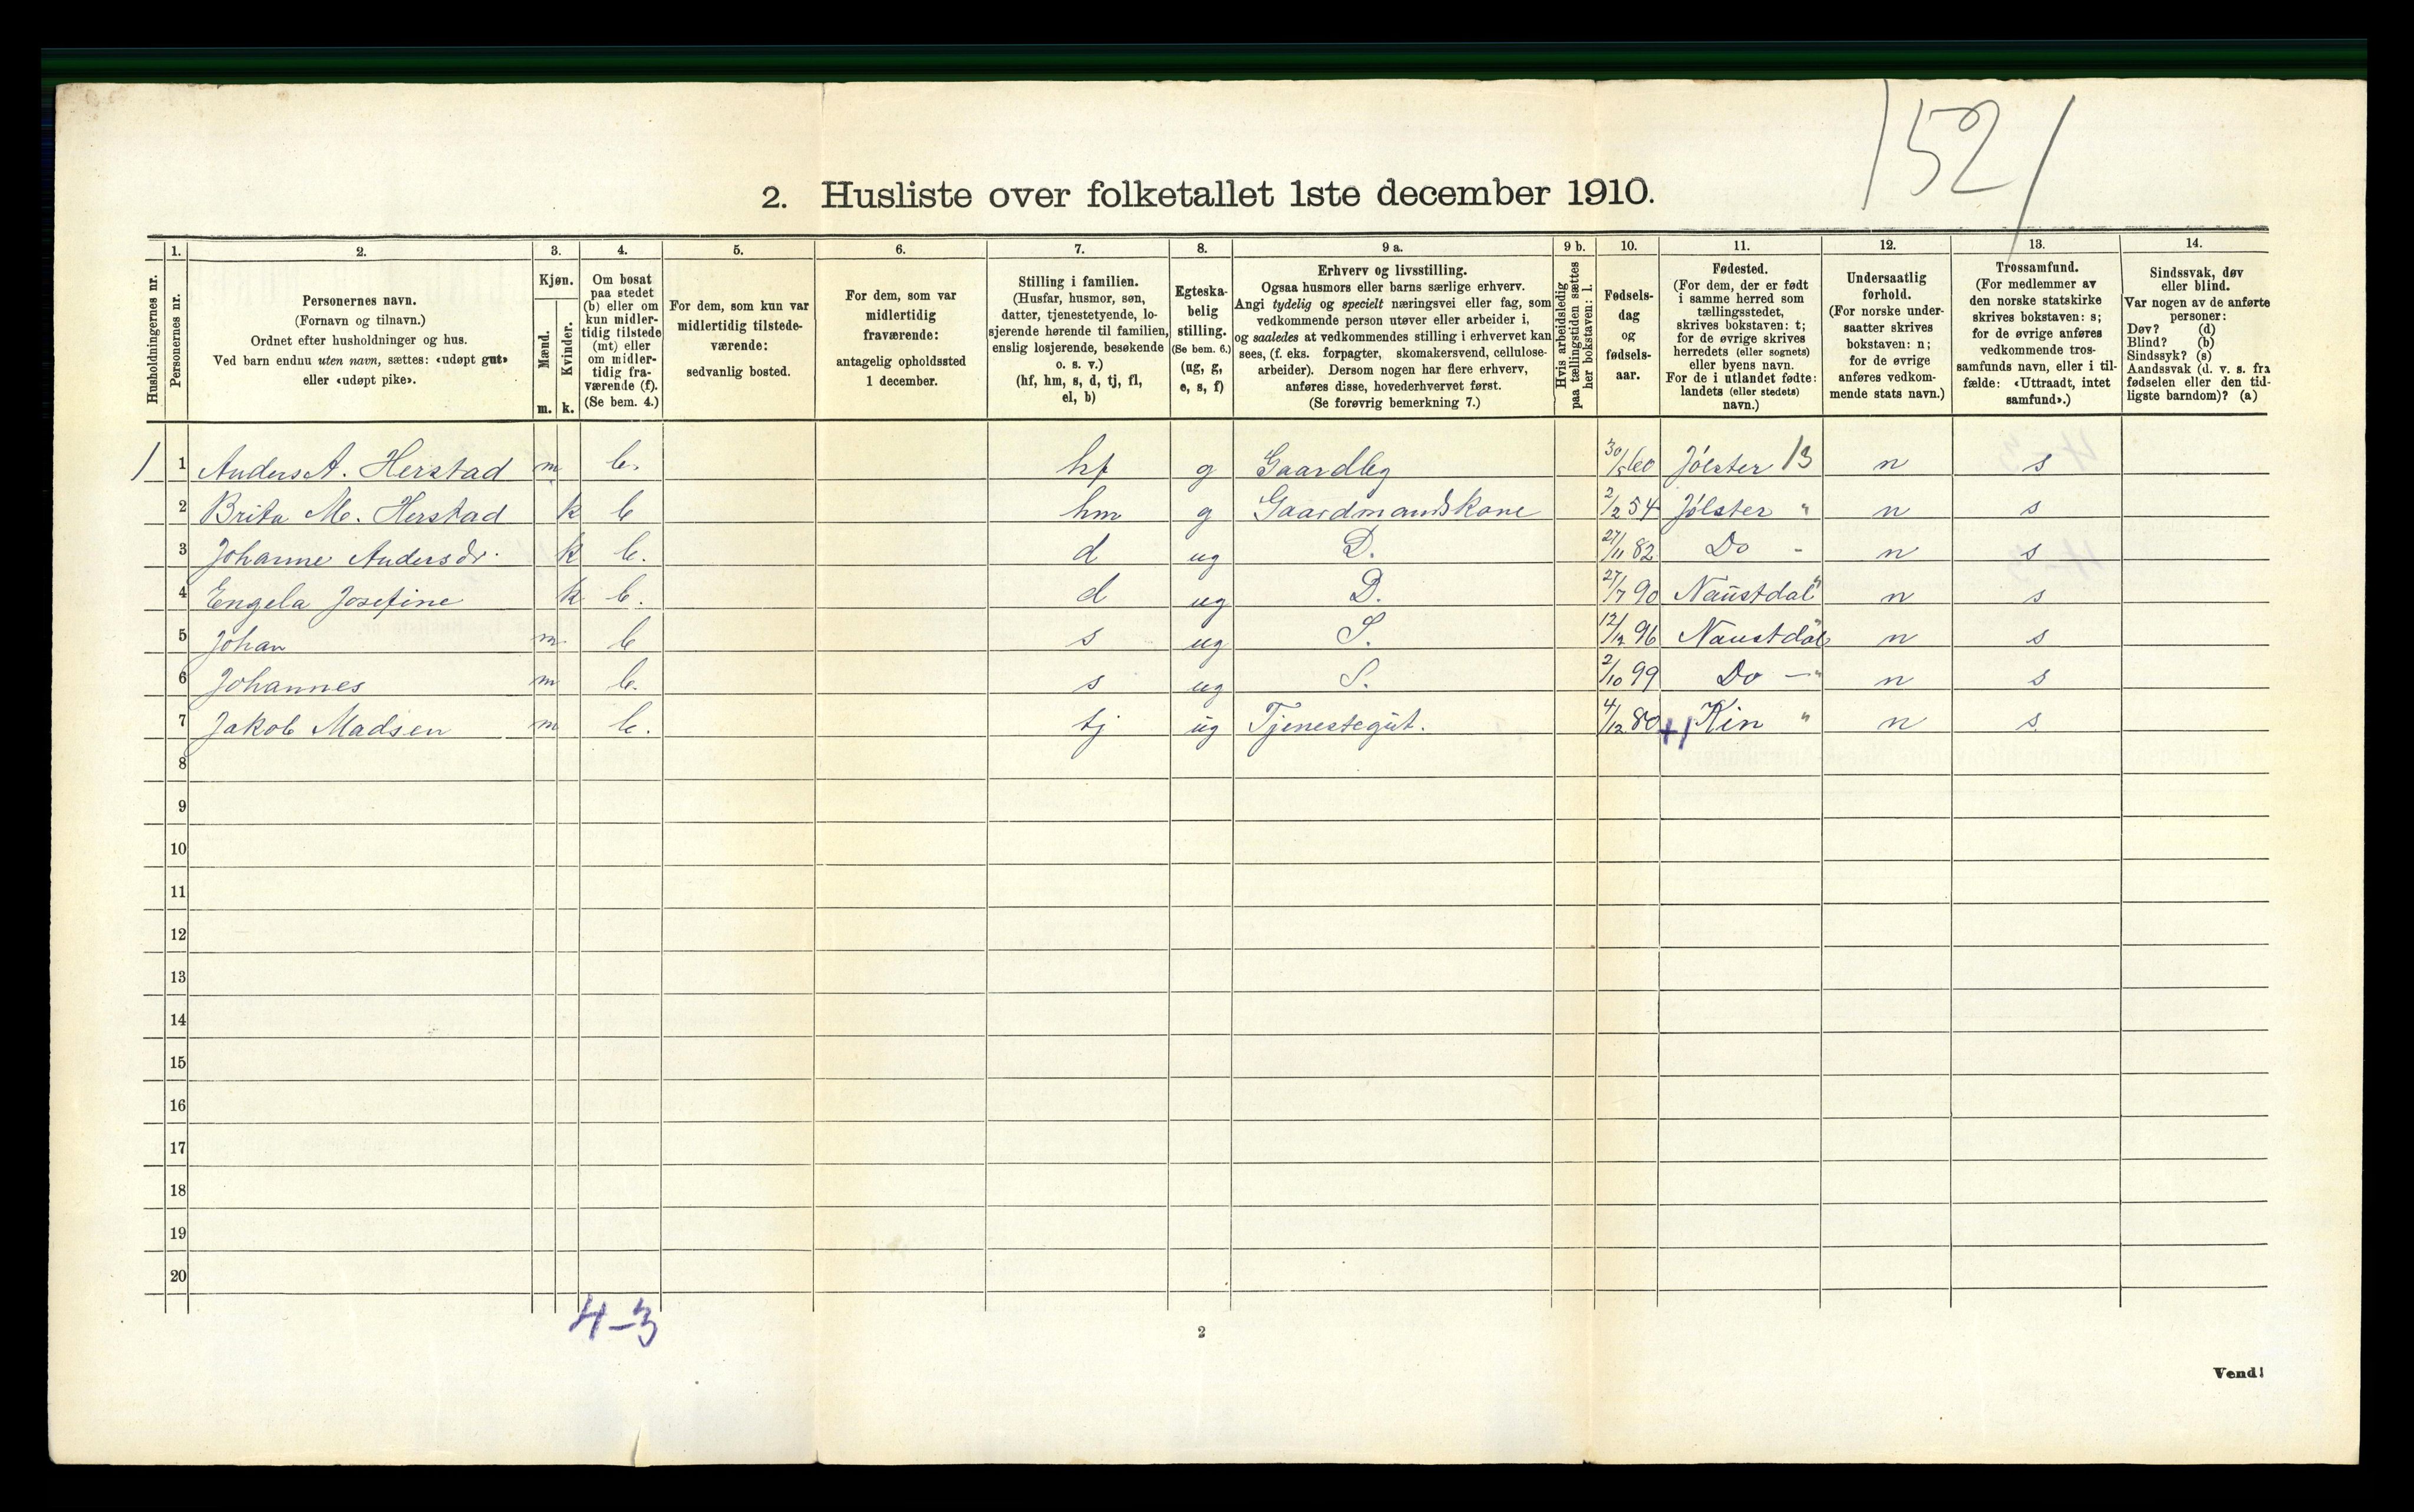 152
2. Husliste over folketallet 1ste december 1910.
Husholdningernes nr.
1. Personernes nr.
2. Personernes navn. (Fornavn og tilnavn.) Ordnet efter husholdninger og hus. Ved barn endnu uten navn, sættes: «udøpt gut» eller «udøpt pike».
3. Kjøn. Mænd. m. Kvinder. k.
4. Om bosat paa stedet (b) eller om kun midlertidig tilstede (mt) eller om midlertidig fraværende (f). (Se bem. 4.)
5. For dem, som kun var midlertidig tilstedeværende: sedvanlig bosted.
6. For dem, som var midlertidig fraværende: antagelig opholdssted 1 december.
7. Stilling i familien. (Husfar, husmor, søn, datter, tjenestetyende, losjerende hørende til familien, enslig losjerende, besøkende o. s. v.) (hf, hm, s, d, tj, fl, el, b)
8. Egteskabelig stilling. (Se bem. 6.) (ug, g, e, s, f)
9 a. Erhverv og livsstilling. Ogsaa husmors eller barns særlige erhverv. Angi tydelig og specielt næringsvei eller fag, som vedkommende person utøver eller arbeider i, og saaledes at vedkommendes stilling i erhvervet kan sees, (f. eks. forpagter, skomakersvend, cellulosearbeider). Dersom nogen har flere erhverv, anføres disse, hovederhvervet først. (Se forøvrig bemerkning 7.)
9 b. Hvis arbeidsledig paa tællingstiden sættes her bokstaven: l.
10. Fødselsdag og fødselsaar.
11. Fødested. (For dem, der er født i samme herred som tællingsstedet, skrives bokstaven: t; for de øvrige skrives herredets (eller sognets) eller byens navn. For de i utlandet fødte: landets (eller stedets) navn.)
12. Undersaatlig forhold. (For norske undersaatter skrives bokstaven: n; for de øvrige anføres vedkommende stats navn.)
13. Trossamfund. (For medlemmer av den norske statskirke skrives bokstaven: s; for de øvrige anføres vedkommende trossamfunds navn, eller i tilfælde: «Uttraadt, intet samfund».)
14. Sindssvak, døv eller blind. Var nogen av de anførte personer: Døv? (d) Blind? (b) Sindssyk? (s) Aandssvak (d. v. s. fra fødselen eller den tidligste barndom)? (a)
1 1 Anders A. Herstad m b. hf g Gaardbg 30/5 60 Jølster 13 n s
2 Brita M. Herstad k b hm g Gaardmandskone 2/2 54 Jølster " n s
3 Johanne Andersdr. k b. d ug D. 27/11 82 Do - n s
4 Engela Josefine k b. d ug D. 27/7 90 Naustdal " n s
5 Johan m b s ug S. 12/12 96 Naustdal " n s
6 Johannes m b. s ug S. 2/10 99 Do - " n s
7 Jakob Madsen m b. tj ug Tjenestegut. 4/12 80 +1 Kin " n s.
8
9
10
11
12
13
14
15
16
17
18
19
20
4-3
2
Vend!